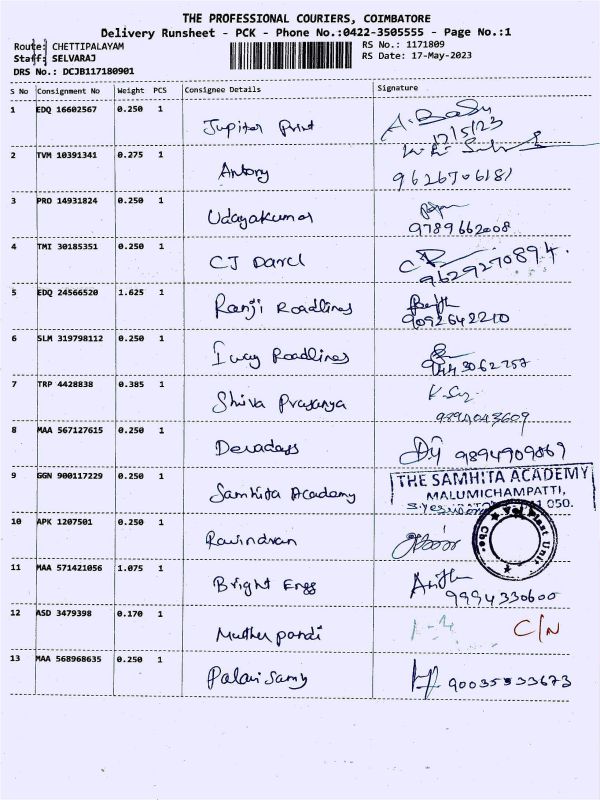 THE PROFESSIONAL COURIERS, COIMBATORE
Delivery Runsheet - PCK - Phone No.:0422-3505555 - Page No.:1
Route: CHETTIPALAYAM
RS No.: 1171809
Staff: SELVARAJ
RS Date: 17-May-2023
DRS No.: DCJB117180901
S No Consignment No Weight PCS Consignee Details Signature
1 EDQ 16602567 0.250 1 Jupiter Print
17/5/23
2 TVM 10391341 0.275 1 Antony
9626706181
3 PRO 14931824 0.250 1 Udayakumar
9789662008
4 TMI 30185351 0.250 1 CJ Darcl
9629270894.
5 EDQ 24566520 1.625 1 Ranji Roadlines
9092642210
6 SLM 319798112 0.250 1 Iway Roadlines
9443062757
7 TRP 4428838 0.385 1 Shiva Prasanya
9894043609
8 MAA 567127615 0.250 1 Deradays
9894909869
9 GGN 900117229 0.250 1 Samhita Academy
THE SAMHITA ACADEMY
MALUMICHAMPATTI,
050.
10 APK 1207501 0.250 1 Ravindran
Plast Unit
11 MAA 571421056 1.075 1 Bright Engg
9994330600
12 ASD 3479398 0.170 1 Muthu pandi C/N
13 MAA 568968635 0.250 1 Palani Samy